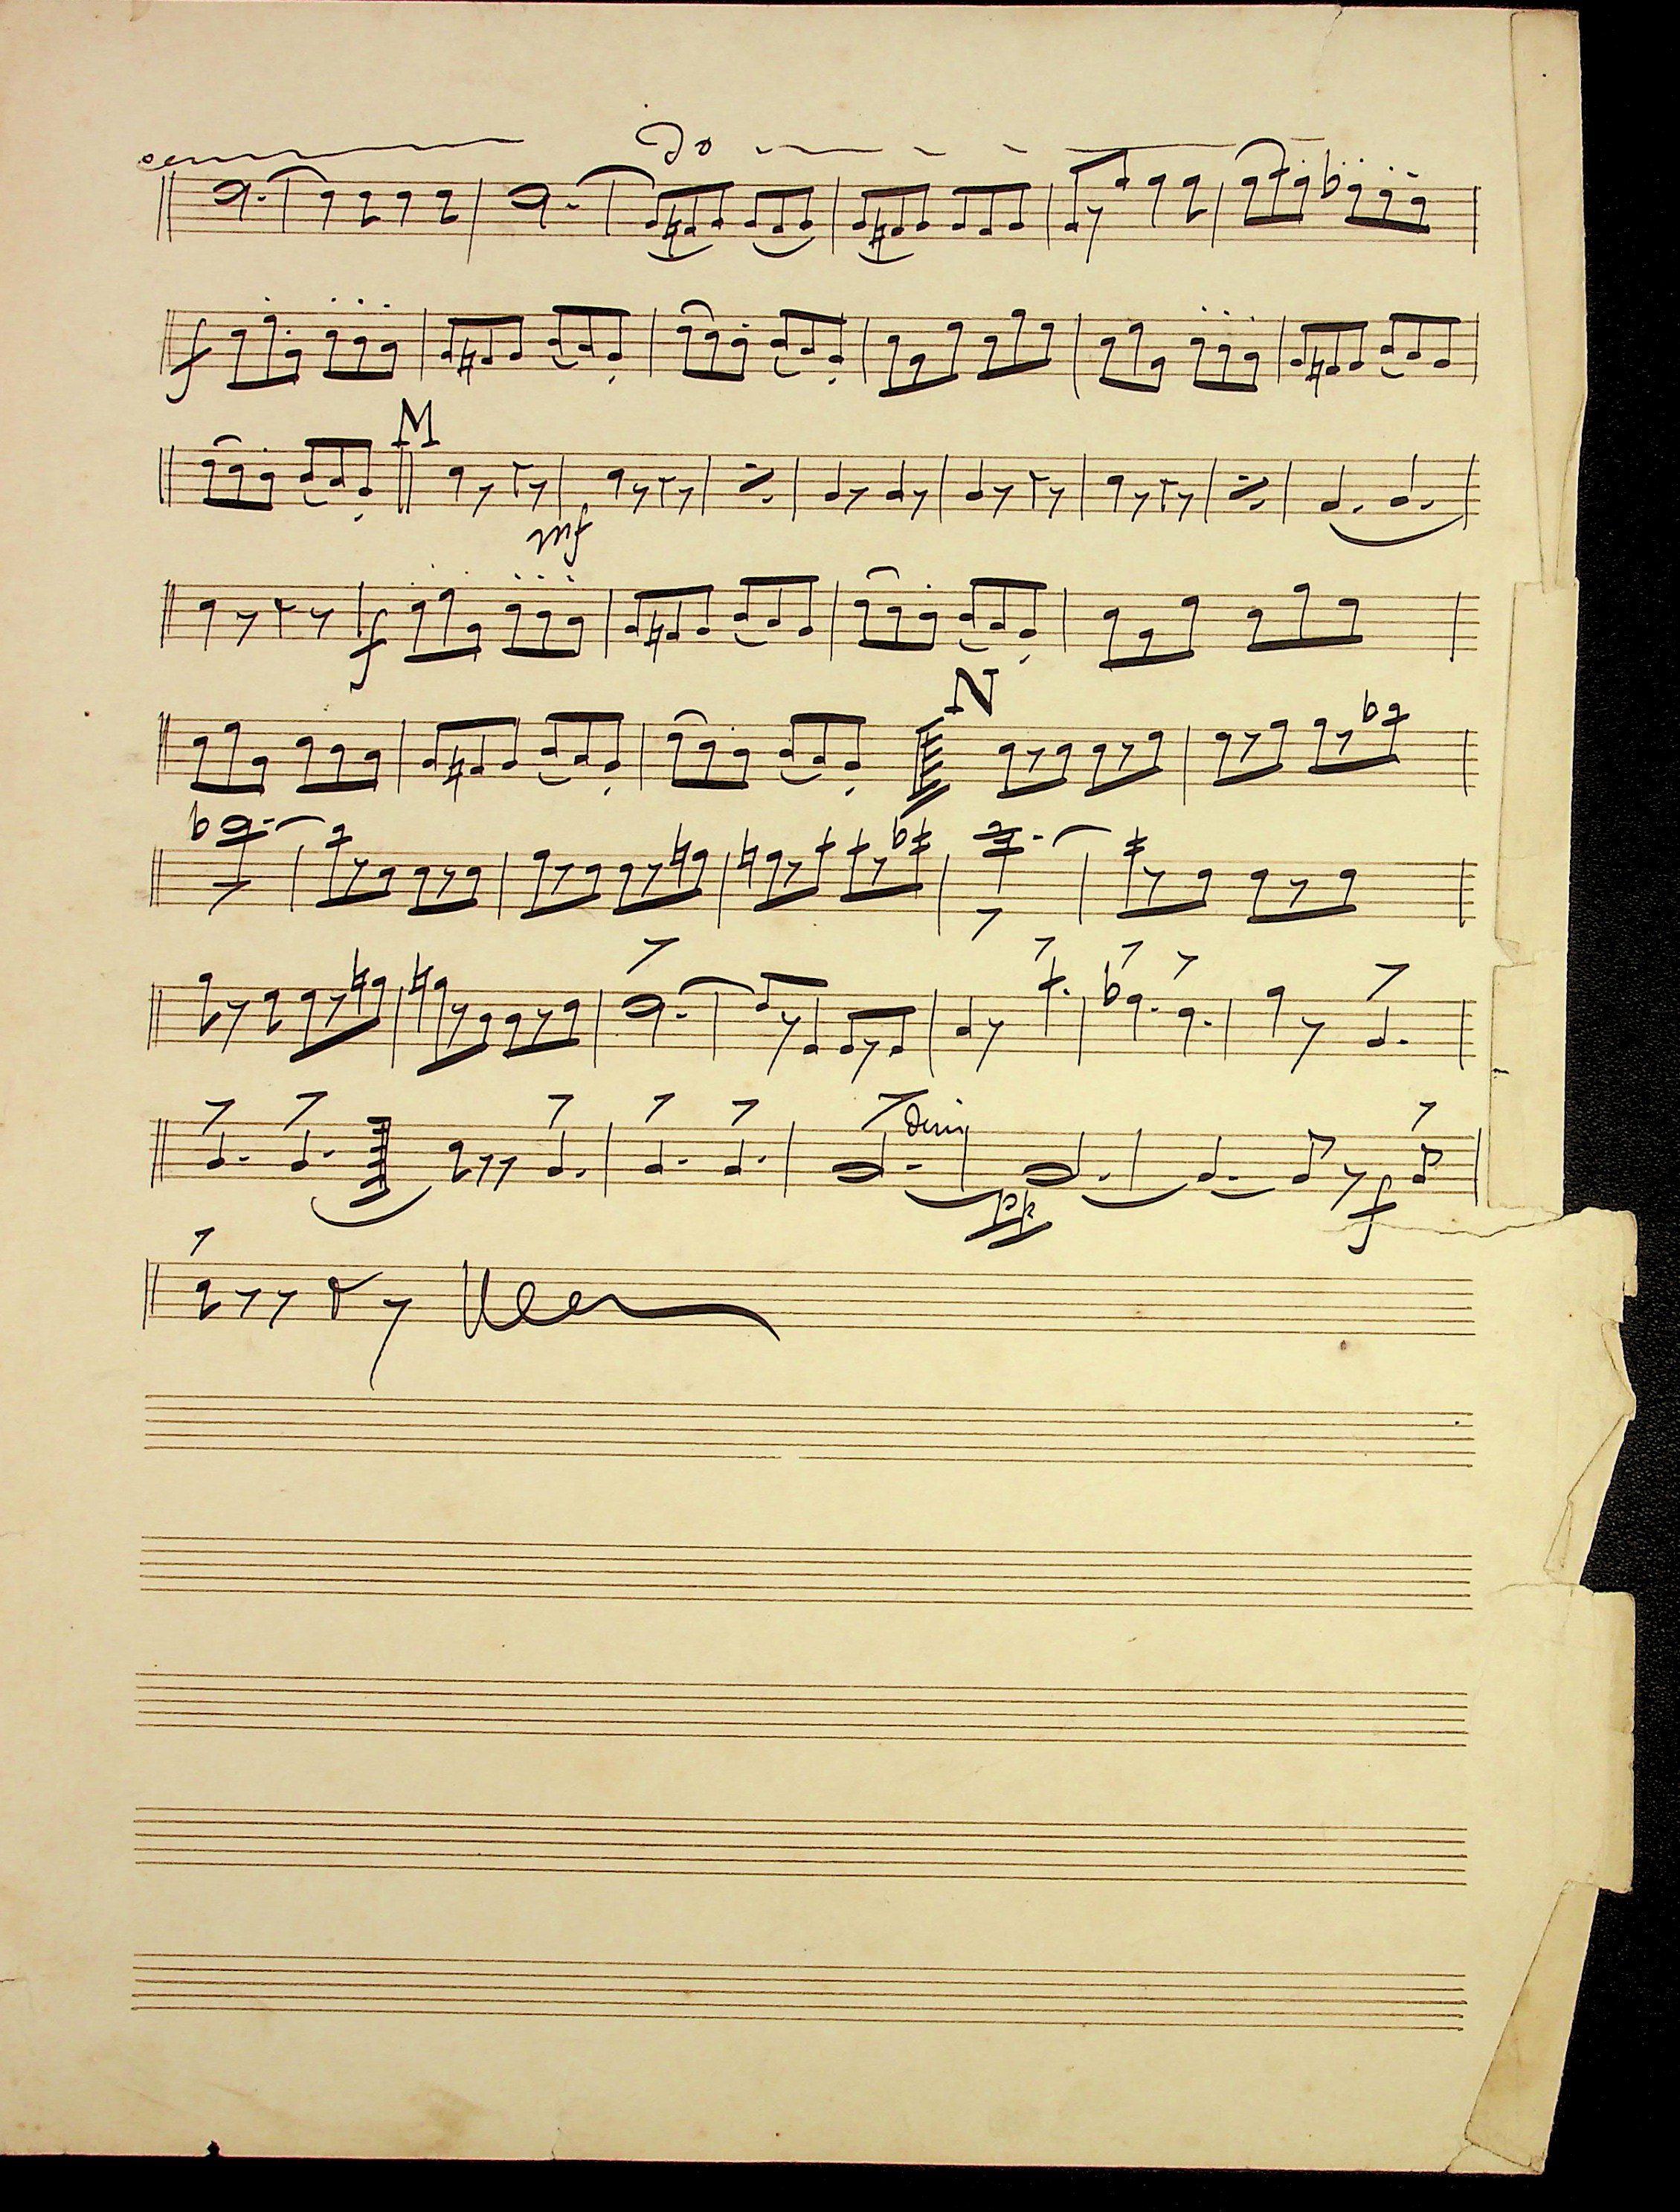 cen do
f
M
mf
f
N
dim
pp
f